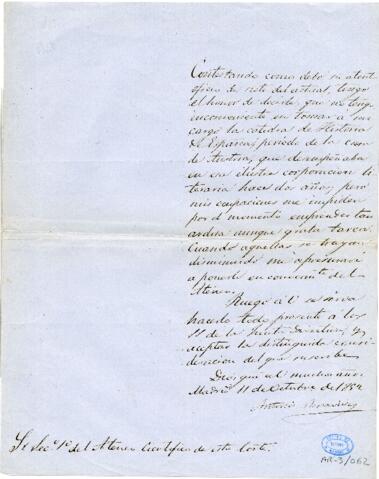 Contestando como debo su atento
oficio de siete del actual, tengo
el honor de decirle que no tengo
inconveniente en tomar a mi
cargo la catedra de Historia
de España, periodo de la casa
de Austria, que desempeñaba
en esa ilustre corporacion li
teraria hace dos años; pero
mis ocupaciones me impiden
por el momento emprender tan
ardua aunque grata tarea.
Cuando aquellas se hayan
disminuido me apresuraré
a ponerlo en conocimto. del
Ateneo.
Ruego á V. se sirva
hacerlo todo presente á los
SS de la Junta Directiva, y
aceptar la distinguida consi
deracion del que suscribe.
Dios gue. a V. muchos años
Madrid 11 de Octubre de 1854
Antonio Benavides
Sr Seco. 1o. del Ateneo Cientifico de esta Corte.
AR-3/062